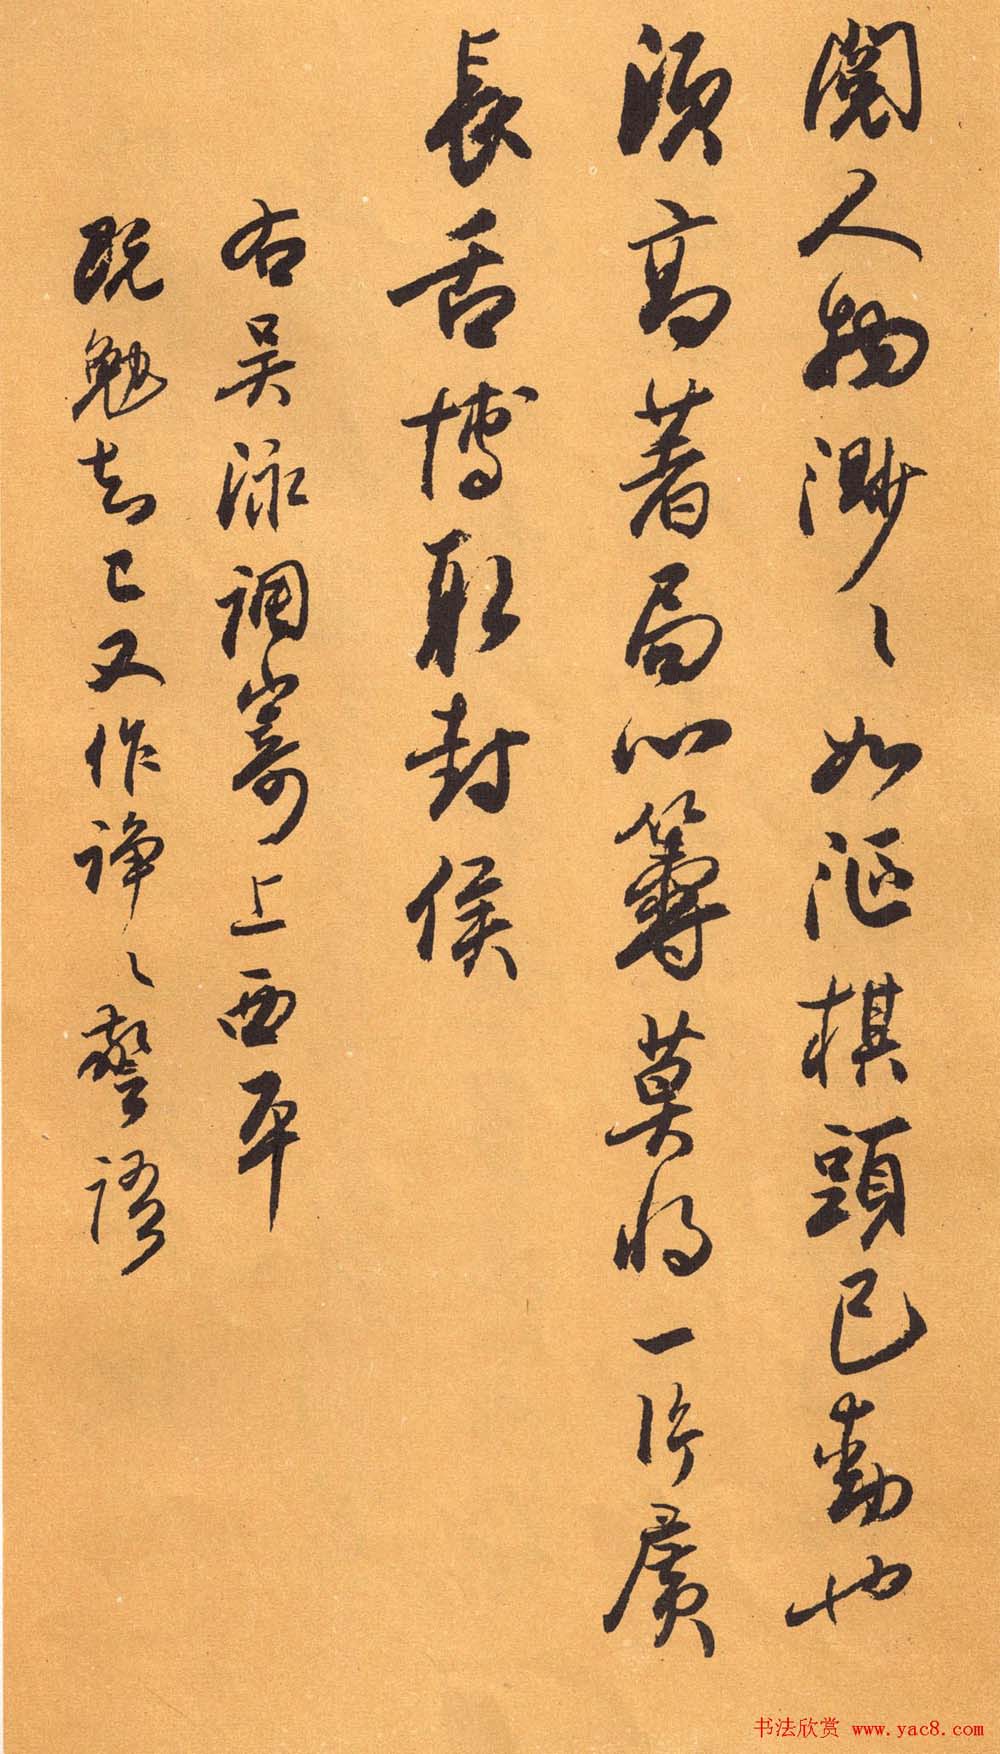 閱人物渺々如漚棋頭已動也
須高著局心籌莫將一片廣
長舌博取封侯
右吳泳調寄上西平
既勉去已又作諍々警語
书法欣赏 www.yac8.com